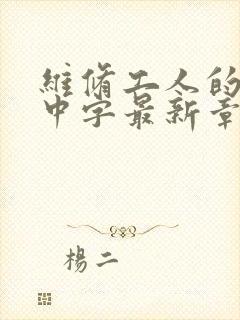 維修工人的
中字最新章
楊二